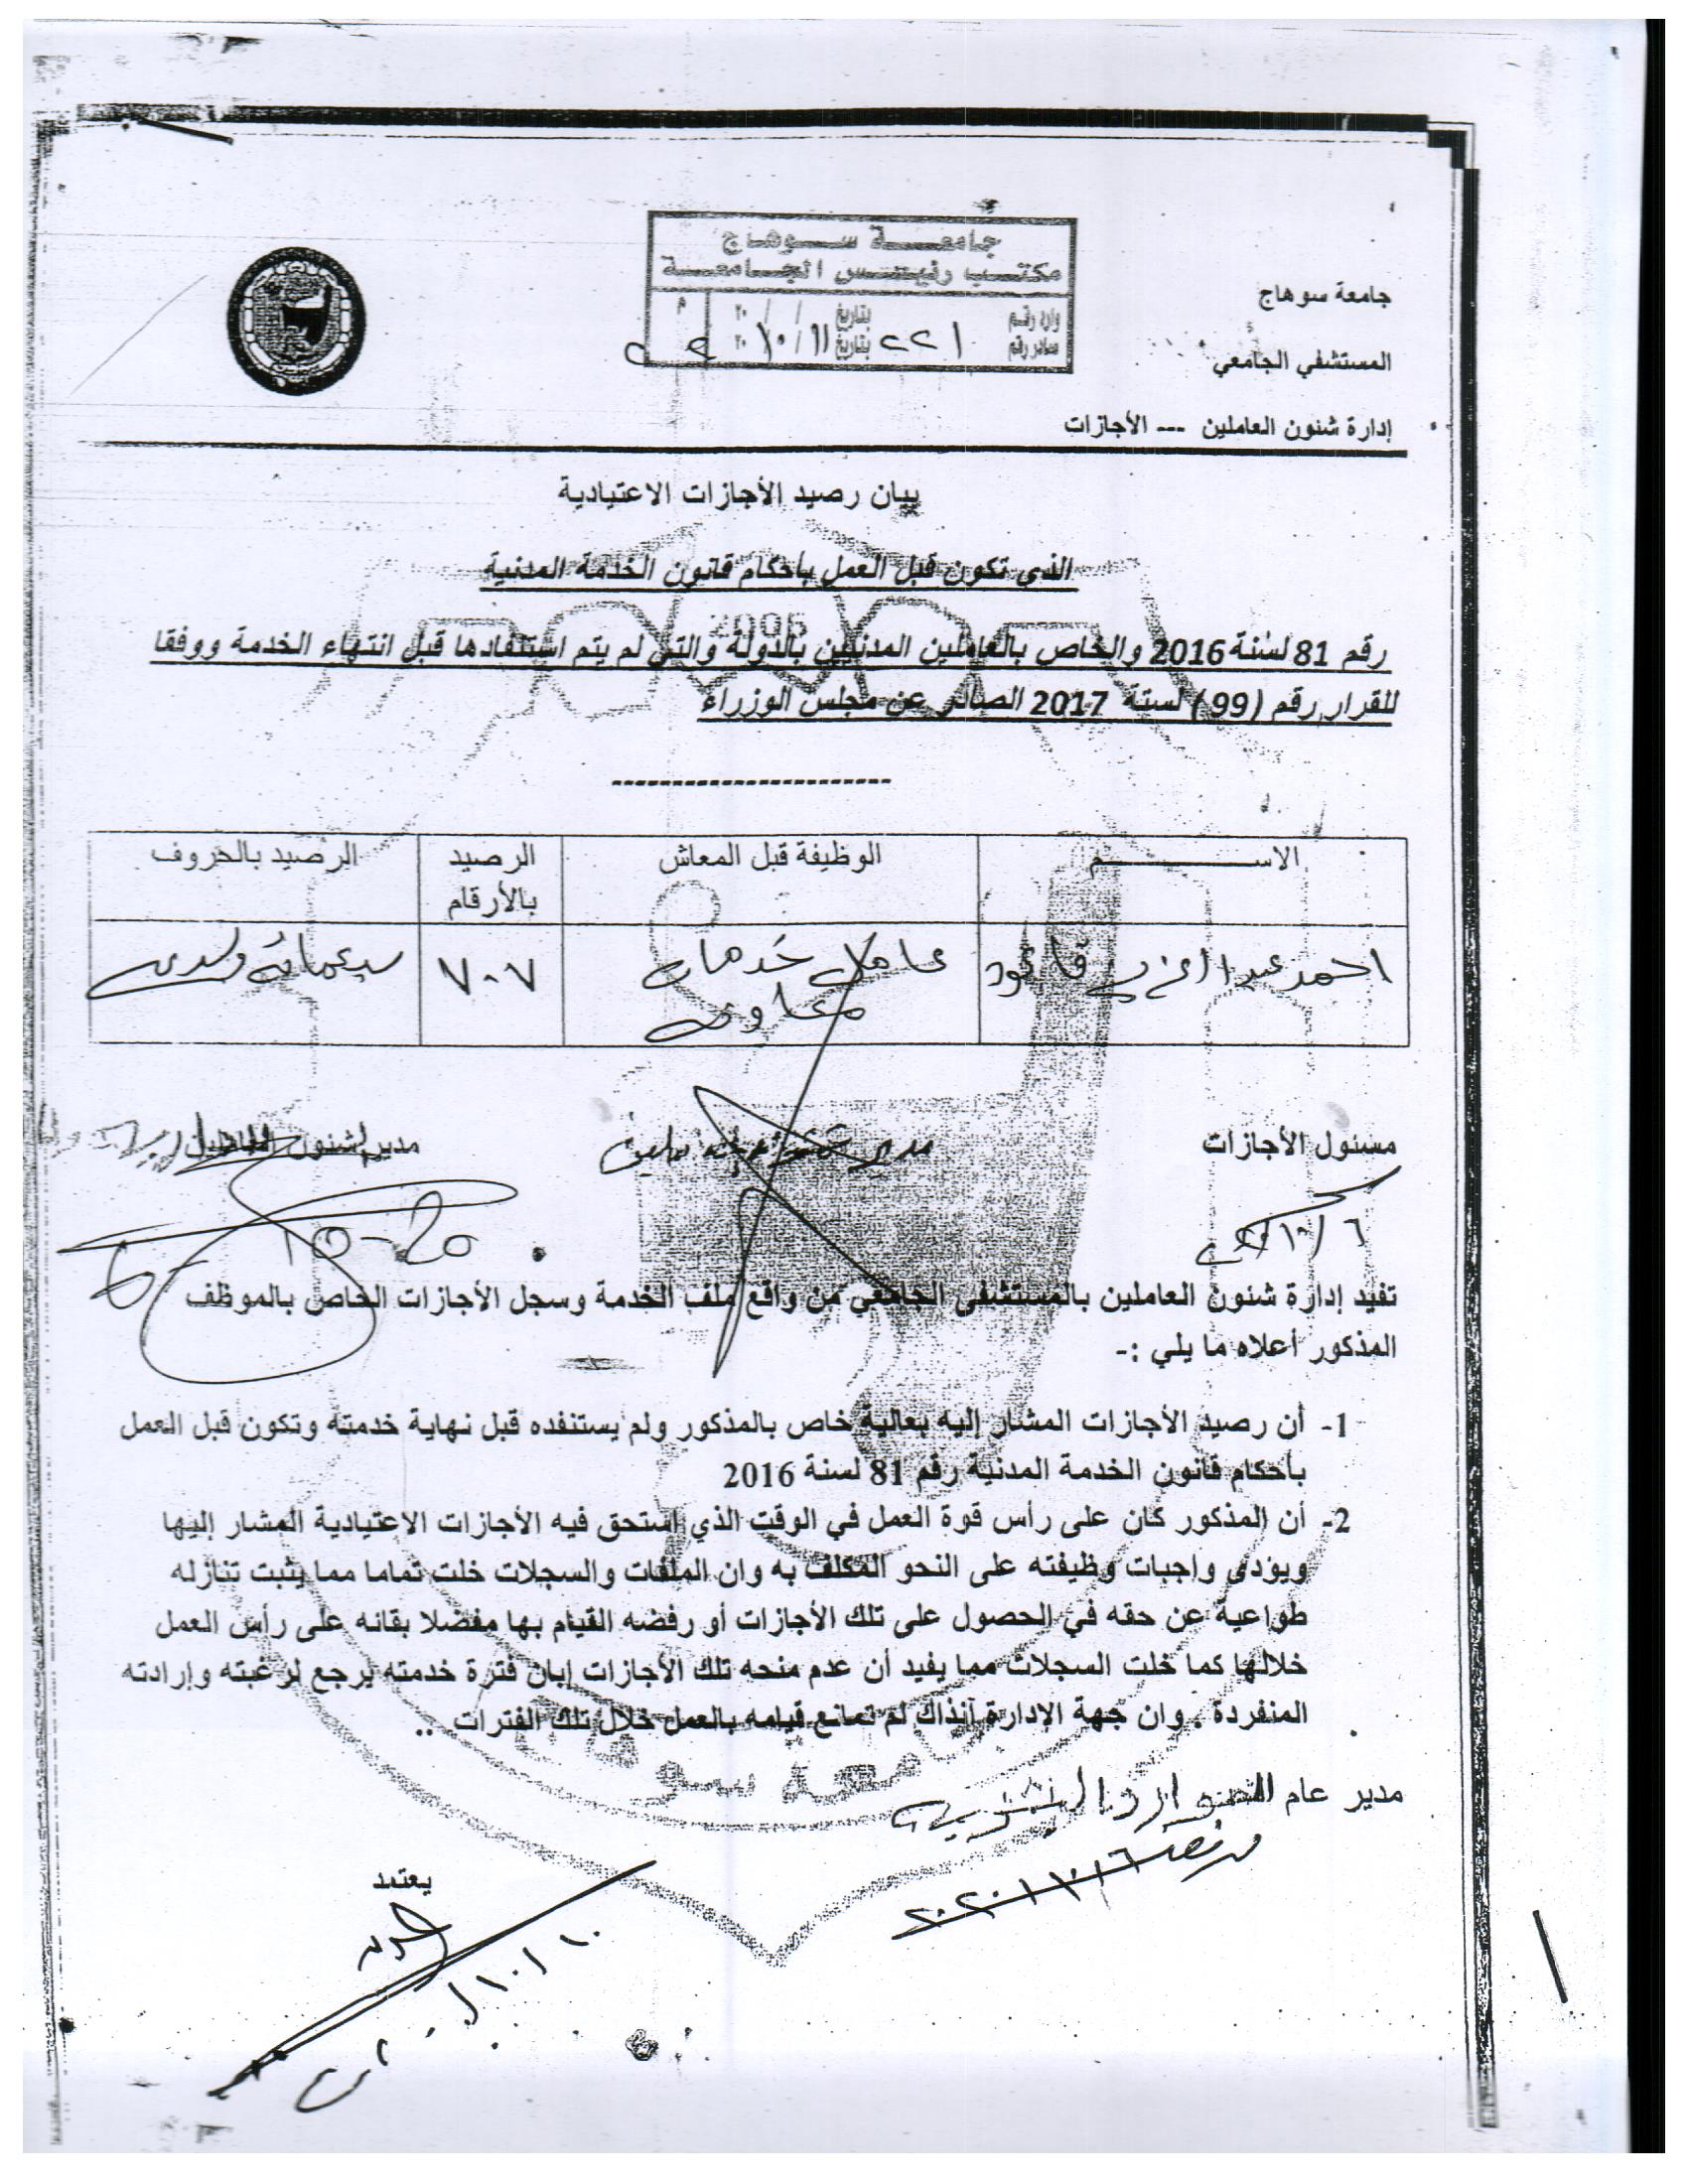 جامعة سوهاج
مكتب رئيس الجامعة
وارد رقم بتاريخ / / ٢٠ م
صادر رقم ٢٢١ بتاريخ ١١ / ١٠ / ٢٠
جامعة سوهاج
المستشفي الجامعي
إدارة شئون العاملين --- الأجازات
بيان رصيد الأجازات الاعتيادية
الذي تكون قبل العمل بأحكام قانون الخدمة المدنية
رقم 81 لسنة 2016 والخاص بالعاملين المدنيين بالدولة والتي لم يتم استنفادها قبل انتهاء الخدمة ووفقا
للقرار رقم (99) لسنة 2017 الصادر عن مجلس الوزراء
الاســـــم الوظيفة قبل المعاش الرصيد بالأرقام الرصيد بالحروف
احمد عبد العزيز عامل خدمات معاونة ٧٠٧ سبعمائة
مسئول الأجازات
مدير شئون
تفيد إدارة شئون العاملين بالمستشفى الجامعي من واقع ملف الخدمة وسجل الأجازات الخاص بالموظف
المذكور أعلاه ما يلي :-
1- أن رصيد الأجازات المشار إليه بعالية خاص بالمذكور ولم يستنفده قبل نهاية خدمته وتكون قبل العمل
بأحكام قانون الخدمة المدنية رقم 81 لسنة 2016
2- أن المذكور كان على رأس قوة العمل في الوقت الذي استحق فيه الأجازات الاعتيادية المشار إليها
ويؤدى واجبات وظيفته على النحو المكلف به وان الملفات والسجلات خلت تماما مما يثبت تنازله
طواعية عن حقه في الحصول على تلك الأجازات أو رفضه القيام بها مفضلا بقائه على رأس العمل
خلالها كما خلت السجلات مما يفيد أن عدم منحه تلك الأجازات إبان فترة خدمته يرجع لرغبته وإرادته
المنفردة . وان جهة الإدارة آنذاك لم تمانع قيامه بالعمل خلال تلك الفترات ..
مدير عام الموارد البشرية
يعتمد